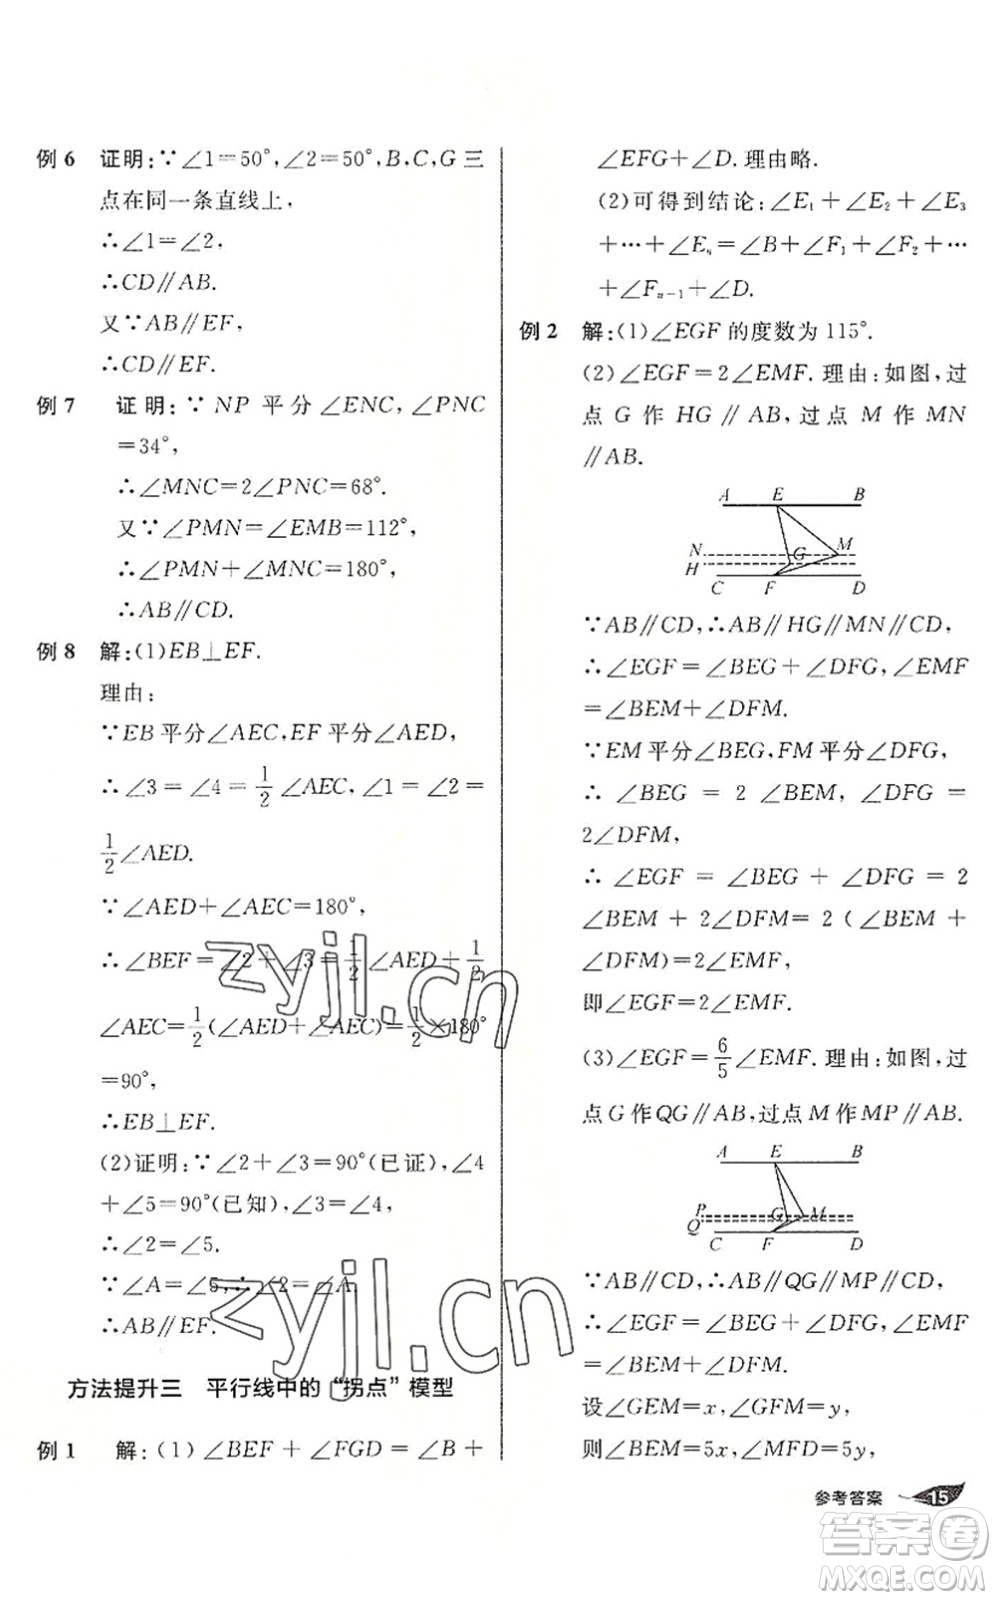 例6 证明:∵∠1=50°,∠2=50°,B,C,G三
点在同一条直线上,
∴∠1=∠2.
∴CD∥AB.
又∵AB∥EF,
∴CD∥EF.
例7 证明:∵NP 平分∠ENC,∠PNC
=34°,
∴∠MNC=2∠PNC=68°.
又∵∠PMN=∠EMB=112°,
∴∠PMN+∠MNC=180°,
∴AB∥CD.
例8 解:(1)EB⊥EF.
理由:
∵EB平分∠AEC,EF平分∠AED,
∴∠3=∠4=1/2∠AEC,∠1=∠2=
1/2∠AED.
∵∠AED+∠AEC=180°,
∴∠BEF=∠2+∠3=1/2∠AED+1/2
∠AEC=1/2(∠AED+∠AEC)=1/2×180°
=90°,
∴EB⊥EF.
(2)证明:∵∠2+∠3=90°(已证),∠4
+∠5=90°(已知),∠3=∠4,
∴∠2=∠5.
∵∠A=∠5,∴∠2=∠A,
∴AB∥EF.
方法提升三 平行线中的“拐点”模型
例1 解:(1)∠BEF+∠FGD=∠B+
∠EFG+∠D.理由略.
(2)可得到结论:∠E1+∠E2+∠E3
+⋯+∠En=∠B+∠F1+∠F2+⋯
+∠Fn-1+∠D.
例2 解:(1)∠EGF的度数为115°.
(2)∠EGF=2∠EMF.理由:如图,过
点G作HG∥AB,过点M作MN
∥AB.
A E B
N G M
H
C F D
∵AB∥CD,∴AB∥HG∥MN∥CD,
∴∠EGF=∠BEG+∠DFG,∠EMF
=∠BEM+∠DFM.
∵EM平分∠BEG,FM平分∠DFG,
∴∠BEG=2∠BEM,∠DFG=
2∠DFM,
∴∠EGF=∠BEG+∠DFG=2
∠BEM+2∠DFM=2(∠BEM+
∠DFM)=2∠EMF,
即∠EGF=2∠EMF.
(3)∠EGF=6/5∠EMF.理由:如图,过
点G作QG∥AB,过点M作MP∥AB.
A E B
P G M
Q
C F D
∵AB∥CD,∴AB∥QG∥MP∥CD,
∴∠EGF=∠BEG+∠DFG,∠EMF
=∠BEM+∠DFM.
设∠GEM=x,∠GFM=y,
则∠BEM=5x,∠MFD=5y,
参考答案 15
zyjl.cn
zyjl.cn
答案卷
MXQE.COM